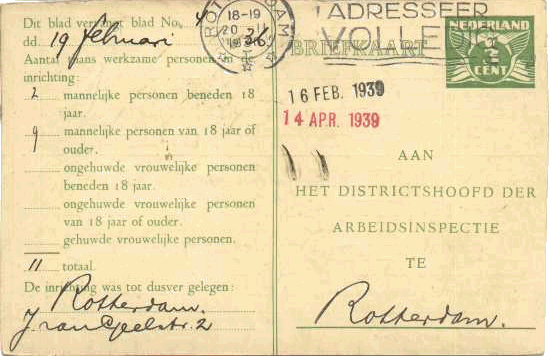 Dit blad vervangt blad No. 4
dd. 19 februari 36
Aantal thans werkzame personen in de
inrichting:
2 mannelijke personen beneden 18
jaar.
9 mannelijke personen van 18 jaar of
ouder.
ongehuwde vrouwelijke personen
beneden 18 jaar.
ongehuwde vrouwelijke personen
van 18 jaar of ouder.
gehuwde vrouwelijke personen.
11 totaal.
De inrichting was tot dusver gelegen:
Rotterdam.
J. van Geelstr. 2
18-19
20
ADRESSEER
VOLLEDIG
BRIEFKAART
NEDERLAND
CENT
16 FEB. 1939
14 APR. 1939
AAN
HET DISTRICTSHOOFD DER
ARBEIDSINSPECTIE
TE
Rotterdam.